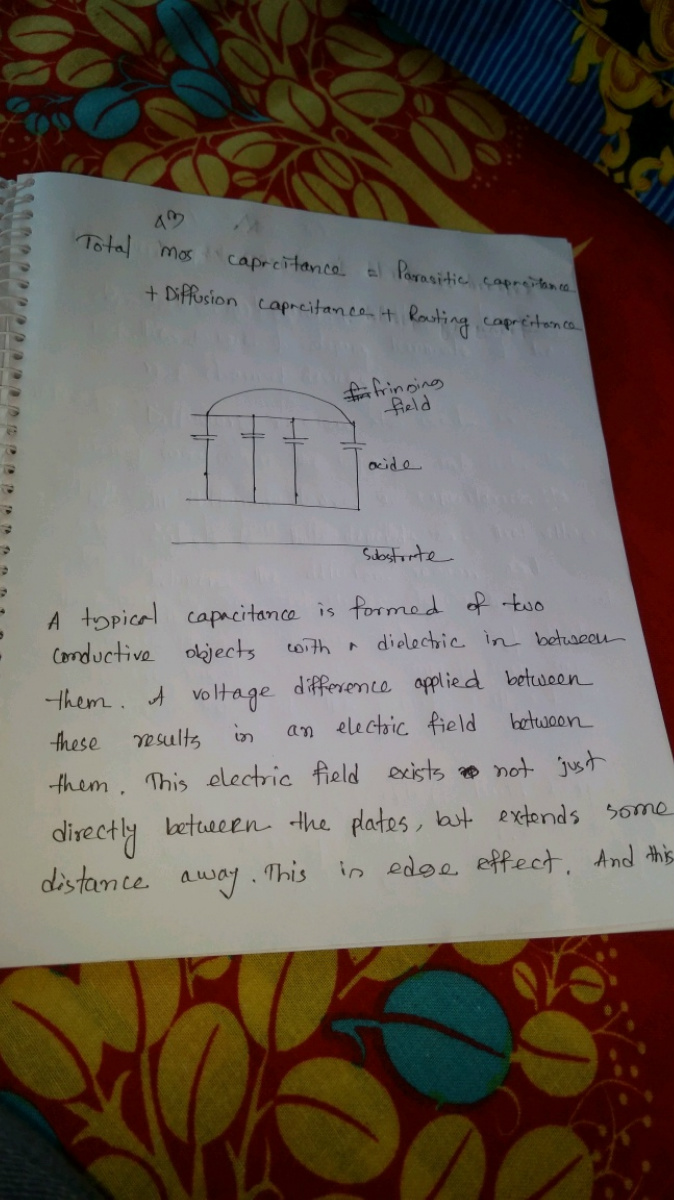 Total mos caprcitance = Parasitic caprcitance
+ Diffusion caprcitance + Routing caprcitance
fringing
field
oxide
Substrte
A typical capacitance is formed of two
conductive objects with a dielectric in between
them. A voltage difference applied between
these results in an electric field between
them. This electric field exists not just
directly between the plates, but extends some
distance away. This is edge effect. And this